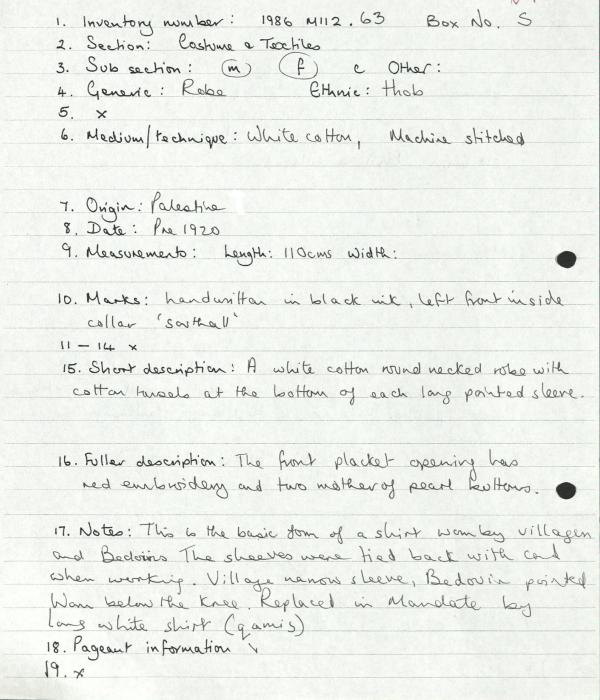 1. Inventory number: 1986 M112.63 Box No. S
2. Section: Costume & Textiles
3. Sub section: m f c Other:
4. Generic: Robe Ethnic: thob
5. x
6. Medium/technique: White cotton, Machine stitched
7. Origin: Palestine
8. Date: Pre 1920
9. Measurements: Length: 110cms Width:
10. Marks: handwritten in black ink, left front inside
collar 'Southall'
11 – 14 x
15. Short description: A white cotton round necked robe with
cotton tassels at the bottom of each long pointed sleeve.
16. Fuller description: The front placket opening has
red embroidery and two mother of pearl buttons.
17. Notes: This is the basic form of a shirt worn by villagers
and Bedouins The sleeves were tied back with cord
when working. Village narrow sleeve, Bedouin pointed
Worn below the knee. Replaced in Mandate by
long white shirt (qamis)
18. Pageant information
19. x